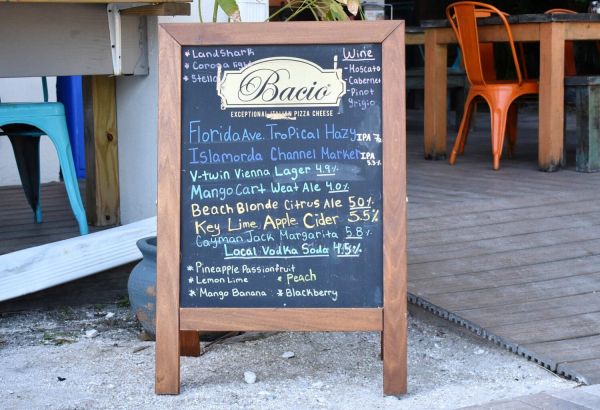 * Landshark
* Corona Light
* Stella
Wine
- Moscato
- Cabernet
- Pinot
grigio
Bacio
EXCEPTIONAL ITALIAN PIZZA CHEESE
Florida Ave. Tropical Hazy IPA
Islamorda Channel Market IPA 5.3%
V-twin Vienna Lager 4.9%
Mango Cart Weat Ale 4.0%
Beach Blonde Citrus Ale 5.0%
Key Lime Apple Cider 5.5%
Cayman Jack Margarita 5.8%
Local Vodka Soda 4.5%
* Pineapple Passionfruit
* Lemon Lime * Peach
* Mango Banana * Blackberry